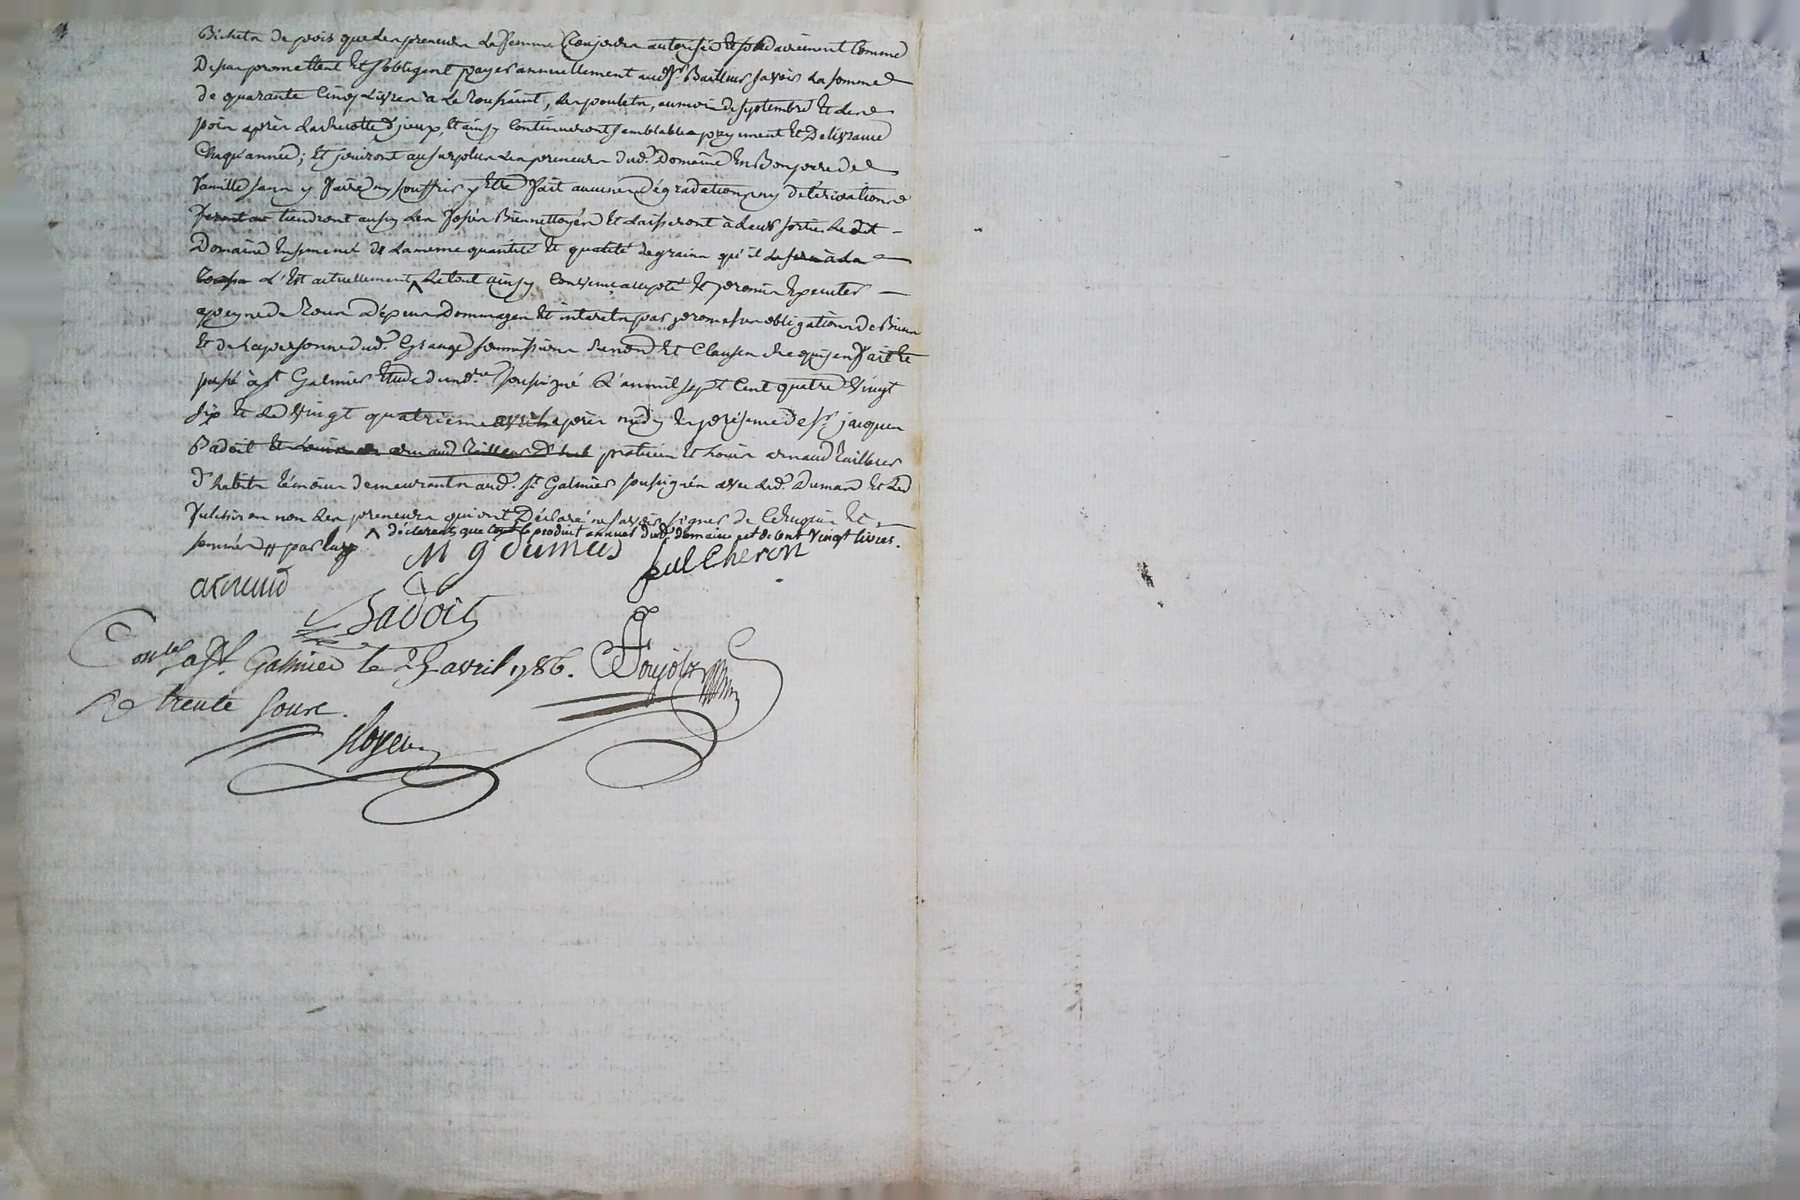 Bichets de pois que les preneurs la femme toujours autorisée et solidairement comme
Dessus promettent Et s'obligent payer annuellement aud. Sr. Bailleur savoir la somme
de quarante Cinq Livres à la Toussaint, les poulets, au mois de septembre Et les
pois après la recolte d'jceux, Et ainsy Continueront semblables payement Et Delivrance
Chaqu'année; Et jouiront au surplus Les preneurs dud. Domaine En Bon pere de
famille sans y faire ny souffrir y Etre fait aucunes dégradations ny déteriorations
tiendront aussy Les fossés Biennettoyés Et Laisseront à Leur sortie Le dit
Domaine Ensemencé de La meme quantité Et qualité de grains qu'il
L'Est actuellement, Le tout ainsy Convenu, accepté Et promis Executer
a peyne de Tous Dépens Dommages Et interets par promesses obligations de Biens
Et de la personne dud. Grange soumissions Renon. Et Clauses de quoy en fait Et
passé à St. Galmier Etude du no.re soussigné L'an mil sept Cent quatre Vingt
six Et Le Vingt quatrieme avril après midy En présence de Sr. jacques
Badoit praticien Et Louis arnaud Tailleur
d'habits témoins demeurants aud. St. Galmier soussignés avec led. Dumas Et Led
fulchiron non Les preneurs qui ont Déclaré ne savoir signer de Ce enquis Et
déclarants que le produit annuel dud. domaine est de Cent Vingt livres.
sommés par
M g dumas
fulCheron
arnaud
Badoit
Con.lé a St. Galmier le 25 avril 1786.
R. trente sous.